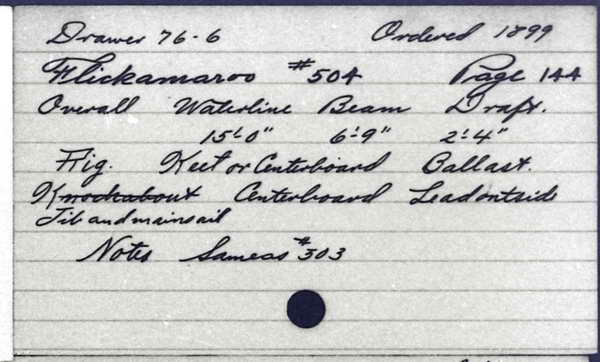 Drawer 76-6 Ordered 1899
Flickamaroo #504 Page 144
Overall Waterline Beam Draft.
15'-0" 6'-9" 2'-4"
Rig. Keel or Centerboard Ballast.
Knockabout Centerboard Lead outside
Jib and mainsail
Notes Same as #503